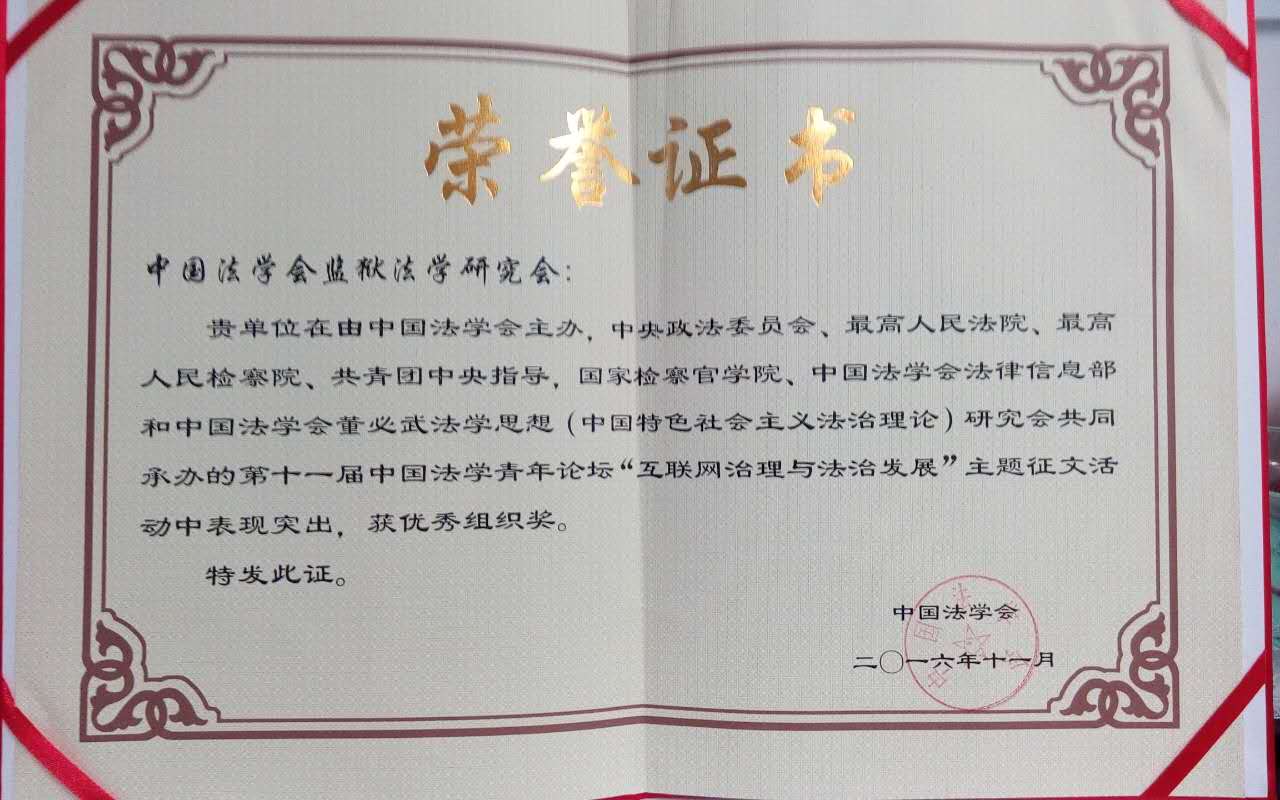 荣誉证书
中国法学会监狱法学研究会：
贵单位在由中国法学会主办，中央政法委员会、最高人民法院、最高
人民检察院、共青团中央指导，国家检察官学院、中国法学会法律信息部
和中国法学会董必武法学思想（中国特色社会主义法治理论）研究会共同
承办的第十一届中国法学青年论坛“互联网治理与法治发展”主题征文活
动中表现突出，获优秀组织奖。
特发此证。
中国法学会
二〇一六年十一月